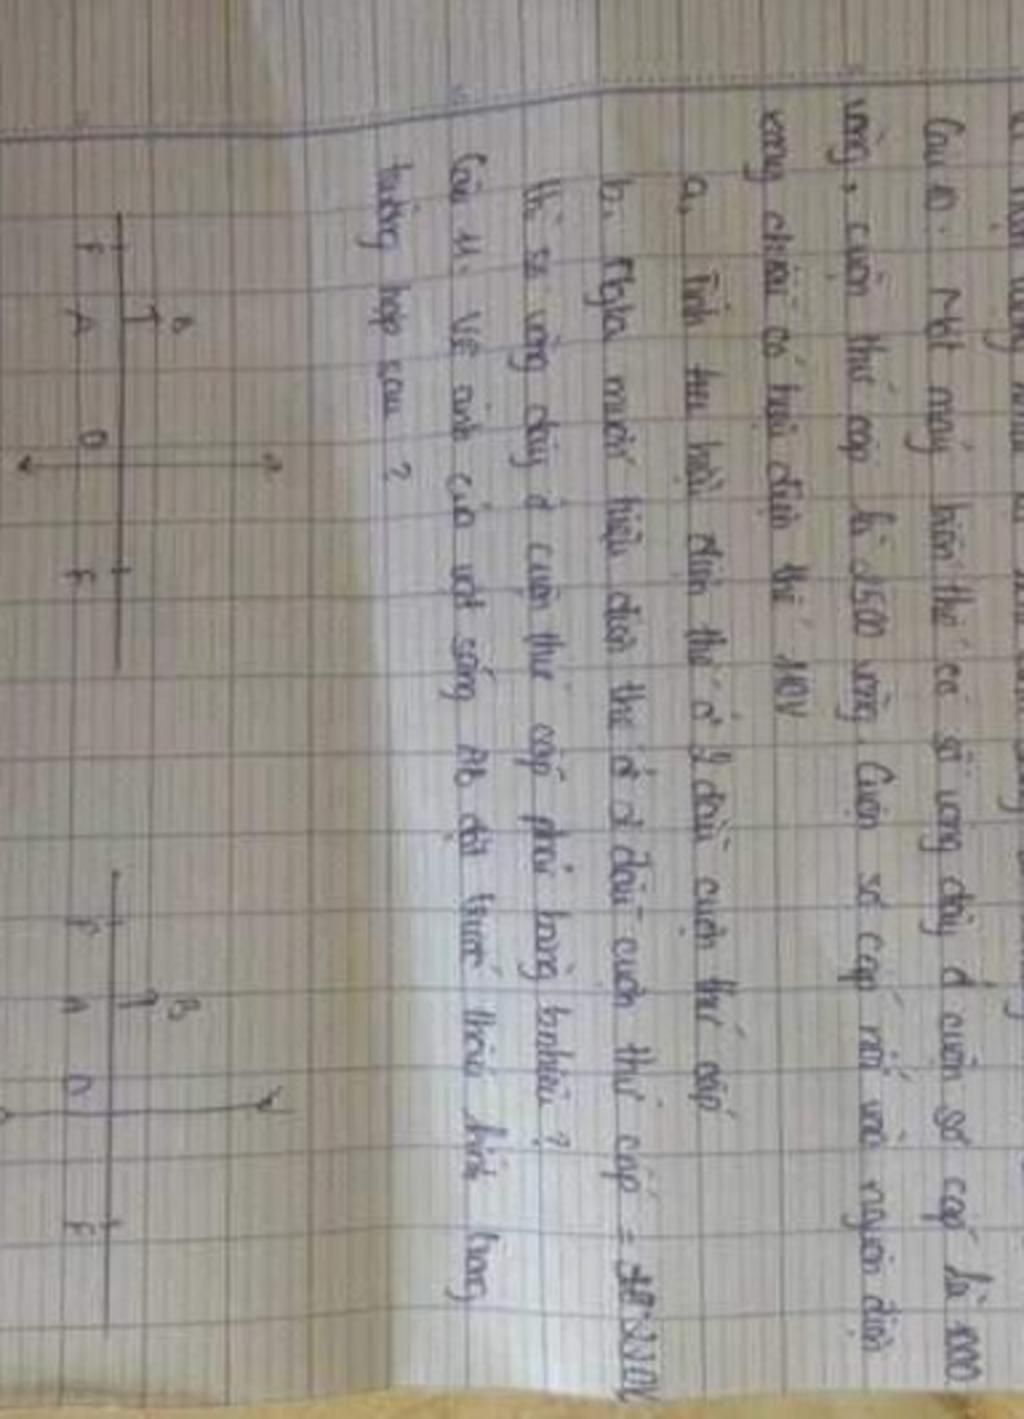 Câu 10. Một máy biến thế có số vòng dây ở cuộn sơ cấp là 1000
vòng, cuộn thứ cấp là 2500 vòng. Cuộn sơ cấp nối vào nguồn điện
xoay chiều có hiệu điện thế 110V
a, Tính hiệu điện thế ở 2 đầu cuộn thứ cấp
b, muốn hiệu điện thế ở 2 đầu cuộn thứ cấp = 220V
thì số vòng dây ở cuộn thứ cấp phải bằng bnhiêu?
Câu 11. Vẽ ảnh của vật sáng AB đặt trước thấu kính trong
trường hợp sau?
B B
F A O F F A O F